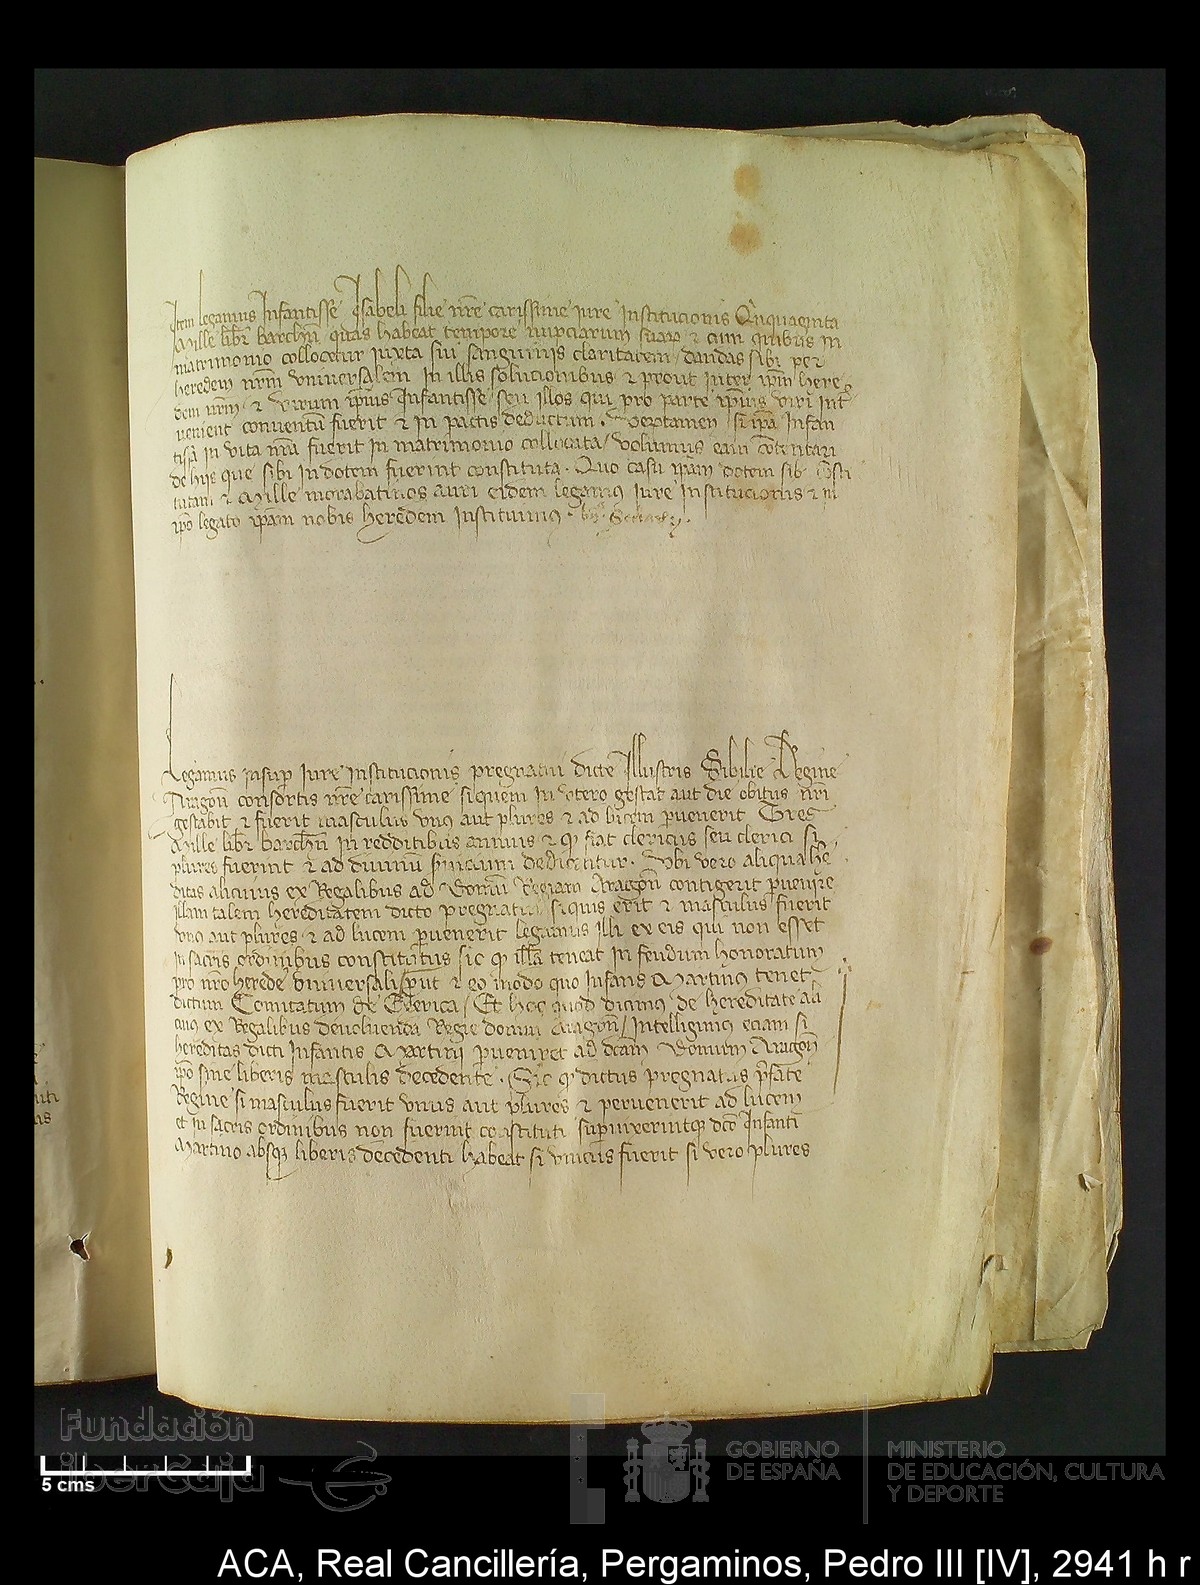 Item legamus Infantisse Isabeli filie nr̃e carissime iure institucionis Quinquaginta
Mille libr̃ barchñ quas habeat tempore nupciarum suaꝝ ⁊ cum quibus in
matrimonio collocetur iuxta sui sanguinis claritatem dandas sibi per
heredem nr̃m vniuersalem In illis solucionibus ⁊ prout inter ip̃m here
dem nr̃m ⁊ virum ip̃ius Infantisse seu illos qui pro parte ip̃ius viri int̾
uenient conuentũ fuerit ⁊ in pactis deductum. Veꝝtamen si ip̃a Infan
tisa in vita nr̃a fuerit in matrimonio collocata / volumus eam cõtentari
de hijs que sibi in dotem fuerint constituta. Quo casu ip̃am dotem sib̾ cõsti
tutam ⁊ Mille morabatinos auri eidem legamus iure institucionis ⁊ in
ip̃o legato ip̃am nobis heredem instituimus.
Legamus insuꝑ iure institucionis pregnatui dicte Illustris Sibilie Regine
Aragoñ consortis nr̃e carissime siquem in vtero gestat aut die obitus nr̃i
gestabit ⁊ fuerit masculus vnus aut plures ⁊ ad lucem ꝑuenerit Tres
Mille libr̃ barchñ in redditibus annuis ⁊ ꝙ fiat clericus seu clerici si
plures fuerint ⁊ ad diuinũ ẜuicium dedicetur. Vbi vero aliqua he
ditas alicuius ex Regalibus ad Domũ Regiam Aragoñ contigerit ꝑuenire
illam talem hereditatem dicto pregnatui siquis erit ⁊ masculus fuerit
vnus aut plures ⁊ ad lucem ꝑuenerit legamus illi ex eis qui non esset
In sacris ordinibus constitutus sic ꝙ illã teneat in feudum honoratum
pro nr̃o herede vniuersali ꝓut ⁊ eo modo quo Infans Martinus tenet
dictum Comitatum de Exerica / Et hoc quod dicimus de hereditate ali
cuius ex Regalibus deuoluenda Regie domui Aragoñ / Intelligimus eciam si
hereditas dicti Infantis Martini ꝑueniret ad dc̃am Domum Aragoñ
ip̃o sine liberis masculis decedente. Sic ꝙ dictus pregnatus p̃fate
Regine si masculus fuerit vnus aut plures ⁊ peruenerit ad lucem
et in sacris ordinibus non fuerint constituti suꝑuixerintqꝫ dc̃o Infanti
Martino absqꝫ liberis decedenti habeat si vnicus fuerit si vero plures
Fundación
iberCaja
5 cms
GOBIERNO
DE ESPAÑA
MINISTERIO
DE EDUCACIÓN, CULTURA
Y DEPORTE
ACA, Real Cancillería, Pergaminos, Pedro III [IV], 2941 h r